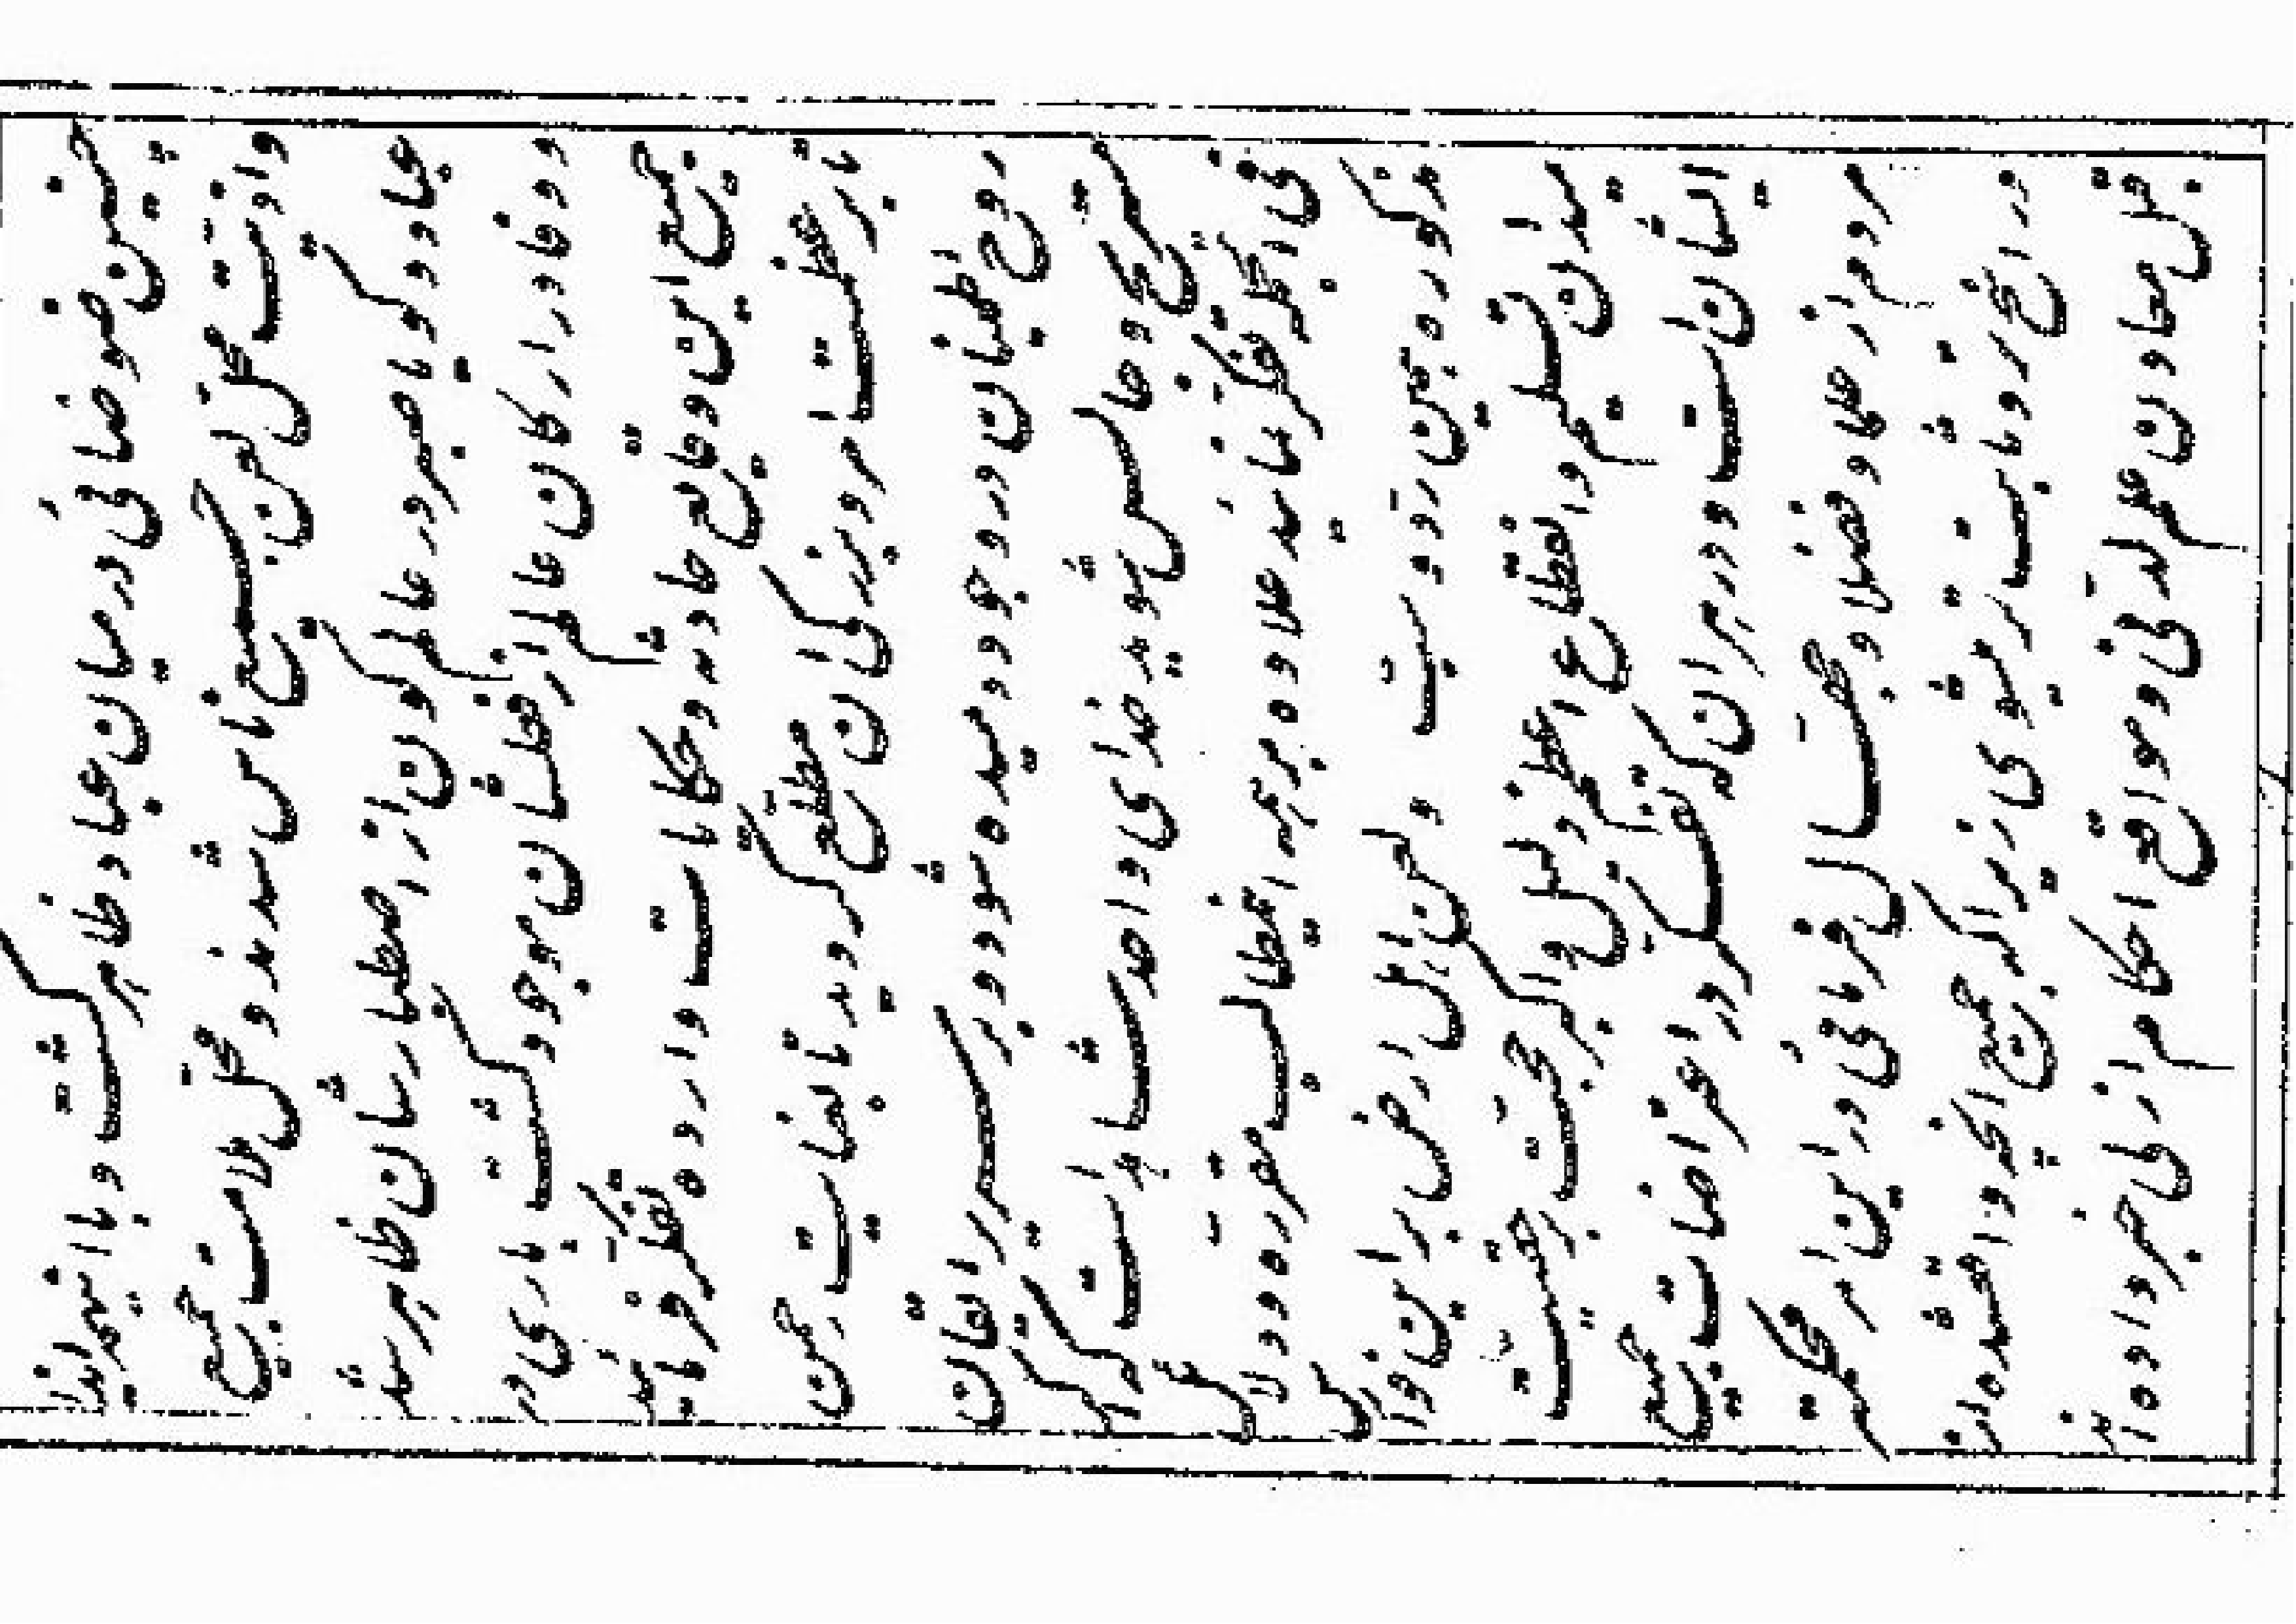 چنین فیوضاتی در میان عباد ظاهر گشت و با اینهمه ایذا
و اذیت محل لعن جمیع ناس شدند و محل ملامت جمیع
عباد و گویا صبر در عالم کون از اصطبارشان ظاهر شد
و وفا در ارکان عالم از فعلشان موجود گشت باری در
جمیع این وقایع حادثه و حکایات وارده تفکر فرمائید
تا بر عظمت امر و بزرگی آن مطلع گردید تا بعنایت رحمن
روح اطمینان در وجود دمیده شود و بر سریر ایقان
مستریح و جالس شوید خدای واحد شاهد است که اگر
فی الجمله تفکر نمائید علاوه بر همه اینمطالب مقرره و دلائل
مذکوره همین رد و سب و لعن اهل ارض بر این فوارس
میدان تسلیم و انقطاع اعظم دلیل و اکبر حجت بر حقیت
ایشان است و در هر آن که تفکر در اعتراضات جمیع
مردم از علما و فضلا و جهال فرمائی در این امر محکمتر
و راسختر و ثابت تر میشوی زیرا که جمیع آنچه واقع شده از
قبل معادن علم لدنی و مواقع احکام ازلی خبر داده اند